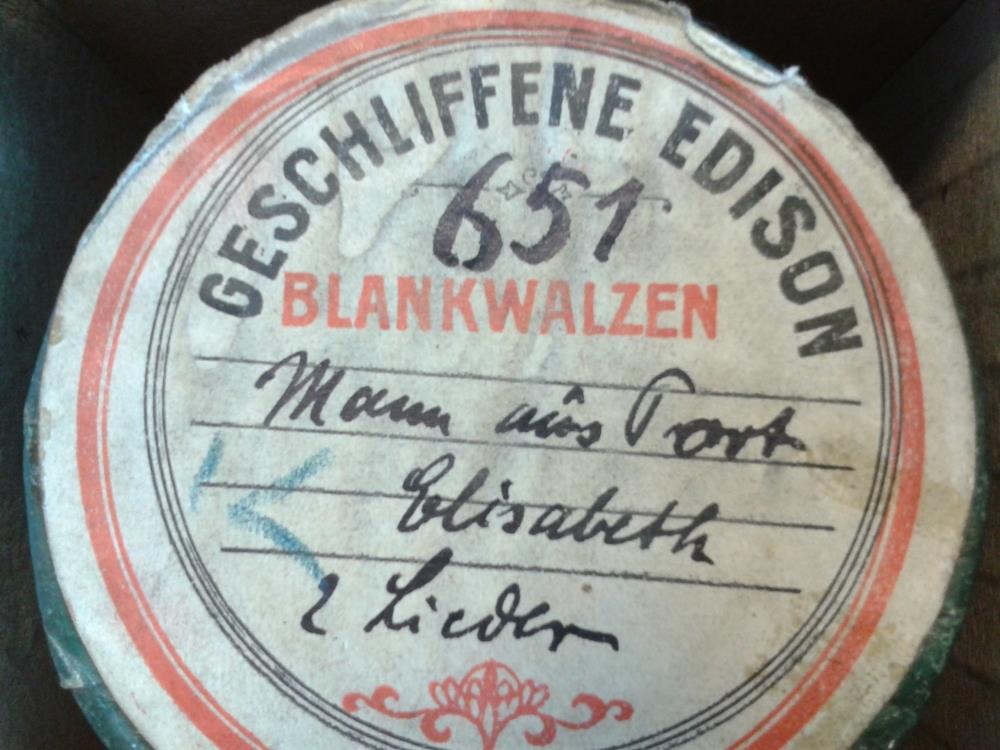 GESCHLIFFENE EDISON
651
BLANKWALZEN
Mann aus Port
Elisabeth
K
2 Lieder